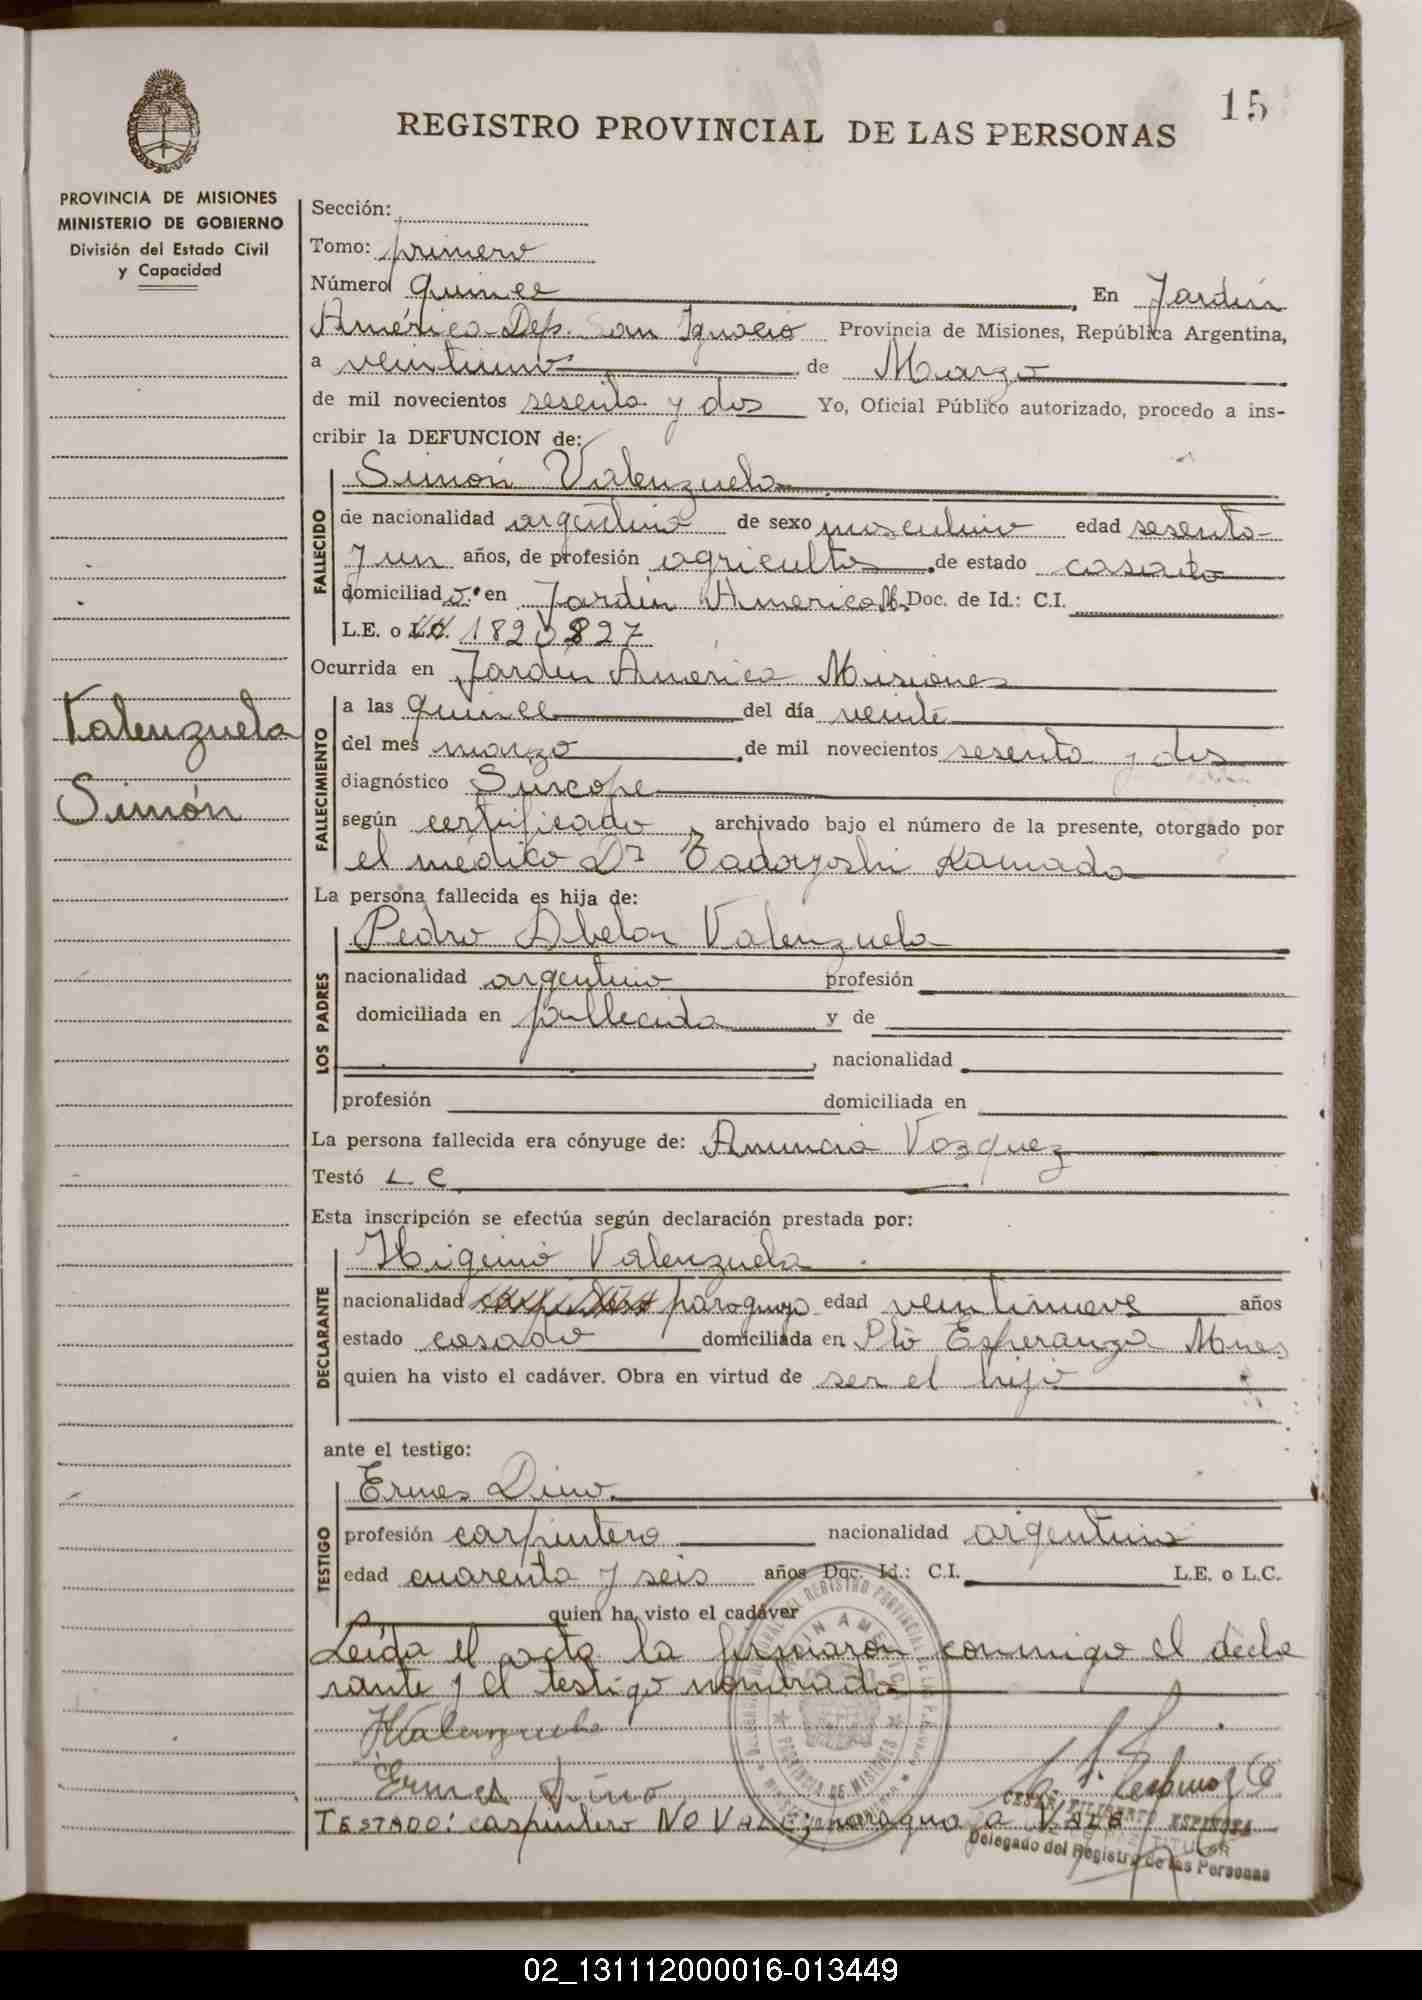 15
REGISTRO PROVINCIAL DE LAS PERSONAS
PROVINCIA DE MISIONES
MINISTERIO DE GOBIERNO
División del Estado Civil
y Capacidad
Valenzuela
Simón
Sección:
Tomo: primero
Número quince En Jardín
América Dep. San Ignacio Provincia de Misiones, República Argentina,
a veintiuno de Marzo
de mil novecientos sesenta y dos Yo, Oficial Público autorizado, procedo a ins-
cribir la DEFUNCION de:
Simón Valenzuela
FALLECIDO
de nacionalidad argentino de sexo masculino edad sesenta
y un años, de profesión agricultor de estado casado
domiciliado en Jardín America Doc. de Id.: C.I.
L.E. o L.C. 1820827
Ocurrida en Jardín América Misiones
FALLECIMIENTO
a las quince del día veinte
del mes marzo de mil novecientos sesenta y dos
diagnóstico Sincope
según certificado, archivado bajo el número de la presente, otorgado por
el médico Dr Tadayoshi Kamada
La persona fallecida es hija de:
LOS PADRES
Pedro Abelor Valenzuela
nacionalidad argentino profesión
domiciliada en fallecido y de
, nacionalidad
profesión domiciliada en
La persona fallecida era cónyuge de: Anuncia Vazquez
Testó L C
Esta inscripción se efectúa según declaración prestada por:
DECLARANTE
Higinio Valenzuela
nacionalidad carpintero paraguayo edad veintinueve años
estado casado domiciliada en Pto Esperanza Mnes
quien ha visto el cadáver. Obra en virtud de ser el hijo
ante el testigo:
TESTIGO
Ermes Dino
profesión carpintero nacionalidad argentino
edad cuarenta y seis años Doc. Id.: C.I. L.E. o L.C.
quien ha visto el cadáver
Leída el acta la firmaron conmigo el decla
rante y el testigo nombrado
HValenzuela
Ermes Dino
TESTADO: carpintero NO VALE; paraguayo VALE
PROVINCIA DE MISIONES
ESPINOSA
TITULAR
Delegado del Registro de las Personas
02_131112000016-013449